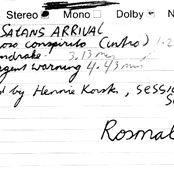 Stereo Mono Dolby N
SATANS ARRIVAL
conspirito (intro) 1.2
ndrake 3.13 min
gent warning 4.43 min
d by Hennie , SESSI
S
Rosmal